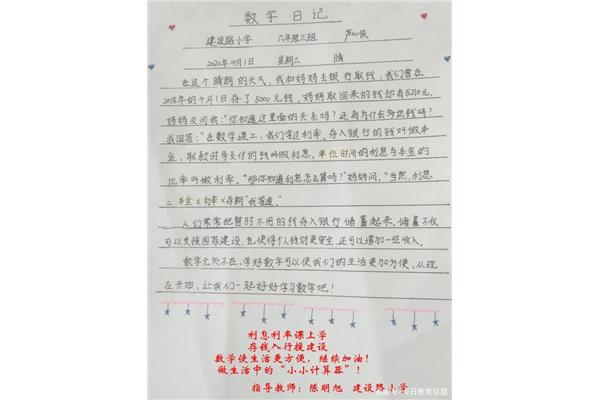 数学日记
建设路小学 六年级三班 芦心依
2020年4月1日 星期三 晴
在这个晴朗的天气,我和妈妈去银行取钱,我们曾在
2018年的4月1日存了5000元钱,妈妈取回来的钱却有5210元.
妈妈反问我:“你知道这里面的关系吗?还有为什会多出钱吗?
我回答:“在数学课上,我们学过利率。存入银行的钱叫做本
金,取款时多支付的钱叫做利息,单位时间的利息与本金的
比率叫做利率。”“那你知道利息怎么算吗?”妈妈问。“当然,利息
=本金×利率×存期”我答道。”
人们常常把暂时不用的钱存入银行储蓄起来.储蓄不仅
可以支援国家建设,也使得个人钱财更安全,还可以增加一些收入。
数学无处不在,学好数学可以使我们的生活更加方便,从现
在开始,让我们一起好好学习数学吧!
利息利率课上学
存钱入行援建设
数学使生活更方便,继续加油!
做生活中的“小小计算器”!
指导教师:陈明旭 建设路小学
今日教育话题